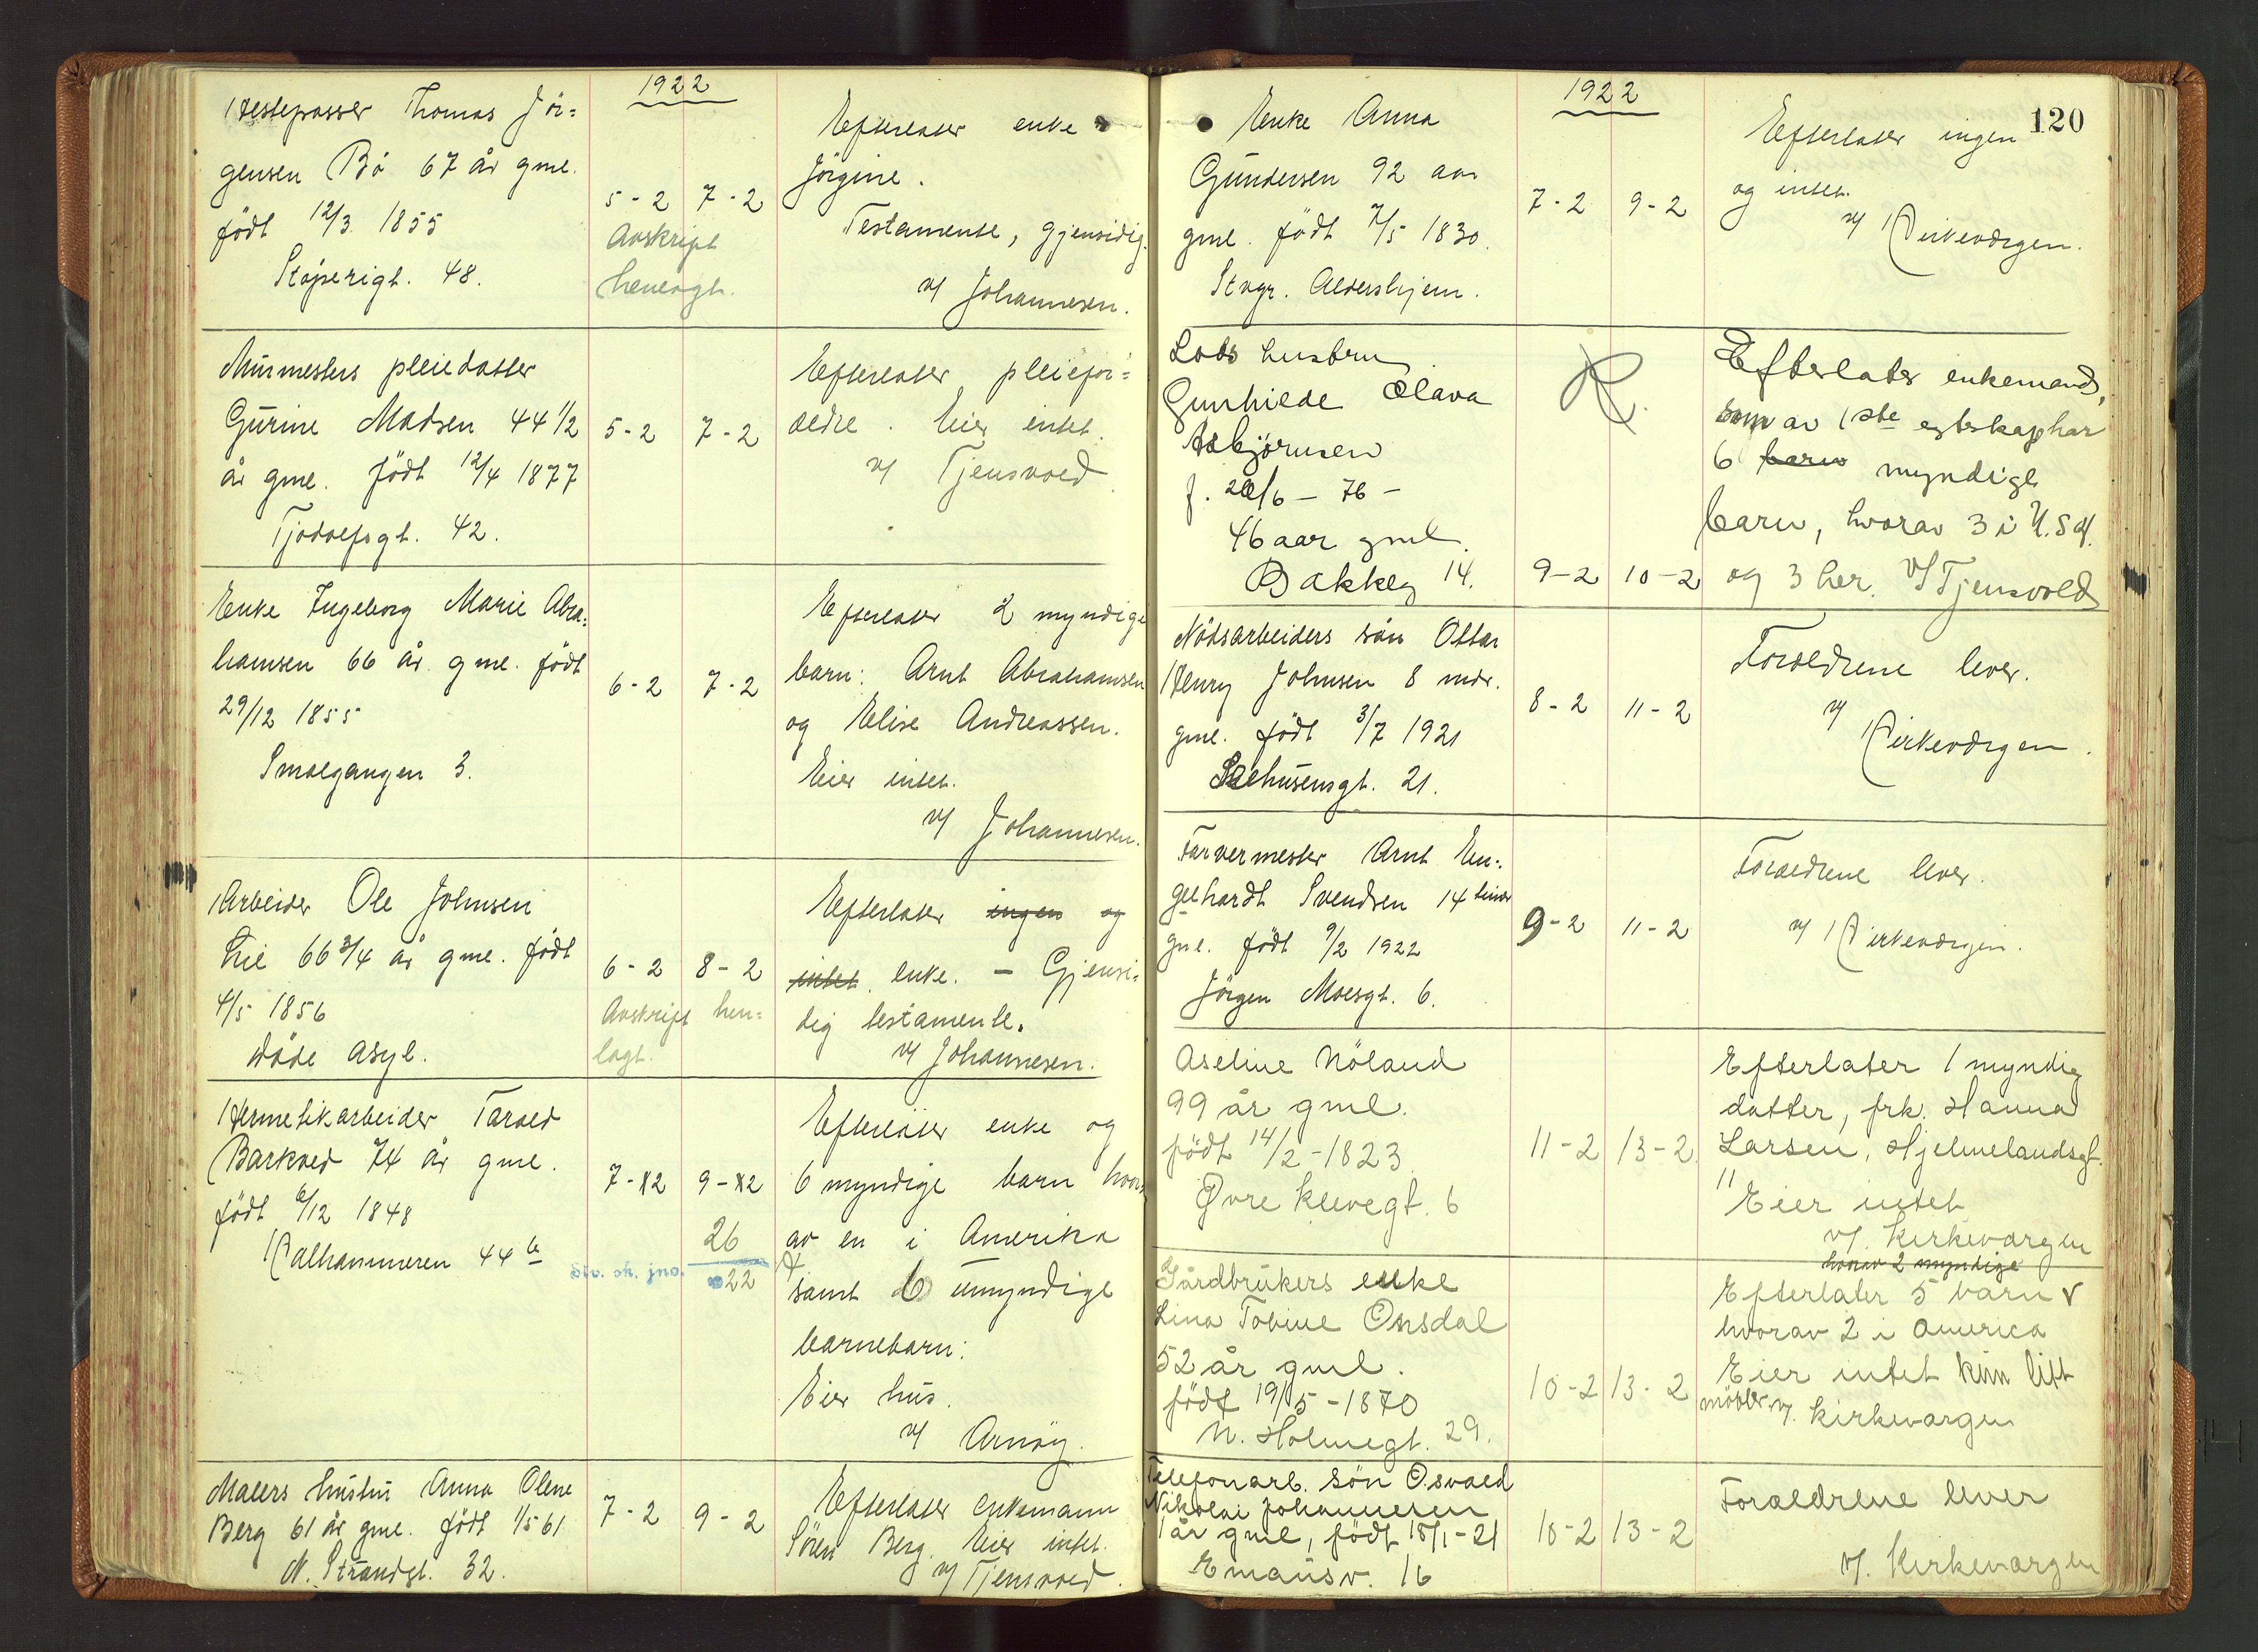 1922
Hestepasser Thomas Jör-
gensen Bö 67 år gml.
født 12/3 1855
Støperigt. 48.
5-2 7-2
Avskript
henlagt.
Efterlater enke
Jörgine.
Testamente, gjensidig.
v/ Johannesen.
Murmesters pleiedatter
Gurine Madsen 44 1/2
år gml. født 12/4 1877
Tjodolfsgt. 42.
5-2 7-2
Efterlater pleiefor-
ældre. Eier intet.
v/ Tjensvold
Enke Ingeborg Marie Abra-
hamsen 66 år gml. født
29/12 1855
Smalgangen 3.
6-2 7-2
Efterlater 2 myndige
barn: Arnt Abrahamsen
og Elise Andreassen.
Eier intet.
v/ Johannesen.
Arbeider Ole Johnsen
Lie 66 3/4 år gml. født
4/5 1856
Våde asyl.
6-2 8-2
Avskript hen-
lagt.
Efterlater ingen og
intet. enke. - Gjensi-
dig testamente.
v/ Johannesen.
Hermetikarbeider Tarald
Barkved 74 år gml.
født 6/12 1848
Kalhammeren 44 b
7-2 9-2
26
Div. sk. jno.
22
Efterlater enke og
6 myndige barn hvor-
av en i Amerika
samt 6 umyndige
barnebarn.
Eier hus.
v/ Arnøy.
Malers hustru Anna Olene
Berg 61 år gml. født 1/5 61
N. Strandgt. 32.
7-2 9-2
Efterlater enkemann
Sören Berg. Eier intet.
v/ Tjensvold.
1922
120
Enke Anna
Gundersen 92 aar
gml. født 7/5 1830.
Stvgr. Aldershjem.
7-2 9-2
Efterlater ingen
og intet.
v/ Kirkeværgen.
Lods hustru
Gunhilde Olava
Asbjörnsen
f. 20/6 - 76 -
46 aar gml.
Bakkeg 14.
R.
9-2 10-2
Efterlater enkemand,
som av 1ste egteskap har
6 barn myndige
barn, hvorav 3 i U.S.A.
og 3 her. v/ Tjensvold
Nødsarbeiders sön Ottar
Henry Johnsen 8 mdr.
gml. født 3/7 1921
Seehusensgt. 21.
8-2 11-2
Forældrene lever.
v/ Kirkeværgen.
Farvermester Arnt En-
gelhardt Svendsen 14 timer
gml. født 9/2 1922
Jörgen Moesgt. 6.
9-2 11-2
Forældrene lever.
v/ Kirkeværgen.
Aseline Nöland
99 år gml.
født 14/2-1823
Øvre Klevegt. 6
11-2 13-2
Efterlater 1 myndig
datter, frk. Hanna
Larsen, Hjelmelandsgt.
11
Eier intet
v/. Kirkevargen
Gårdbrukers enke
Lina Tobine Onsdal
52 år gml.
født 19/5-1870
N. Holmegt. 29.
10-2 13-2
hvorav 2 myndige
Efterlater 5 barn v
hvorav 2 i America
Eier intet kun litt
möbler v/. Kirkevargen
Telefonarb. sön Osvald
Nikolai Johannesen
1 år gml, født 15/1-21
Emausv. 16
10-2 13-2
Foraeldrene lever
v/. Kirkevargen